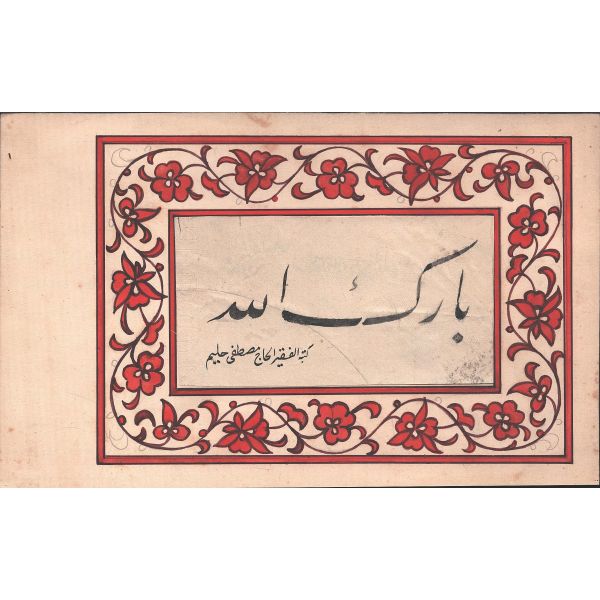 بارك الله
كتبه الفقير الحاج مصطفى حليم